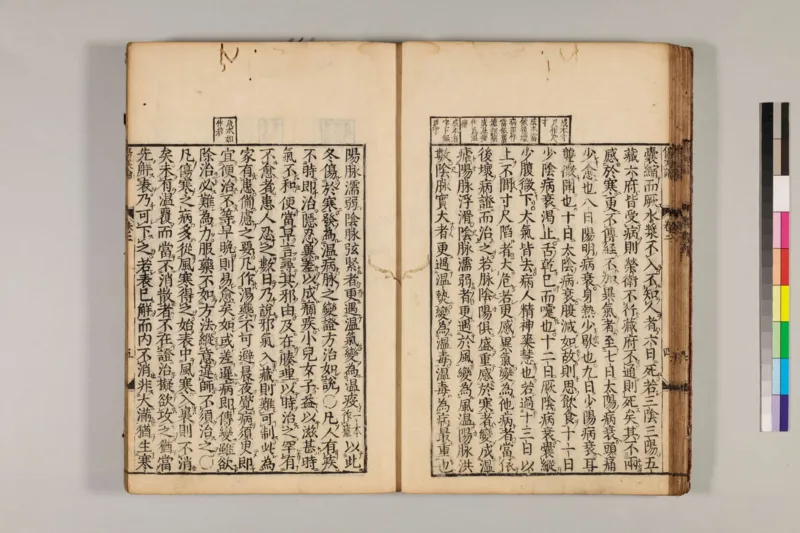 囊縮而厥水漿不入不知人者六日死若三陰三陽五
藏六府皆受病則榮衛不行藏府不通則死矣其不兩
感於寒更不傳經不加異氣者至七日太陽病衰頭痛
少愈也八日陽明病衰身熱少歇也九日少陽病衰耳
聾微聞也十日太陰病衰腹減如故則思飲食十一日
少陰病衰渴止舌乾已而嚏也十二日厥陰病衰囊縱
少腹微下大氣皆去病人精神爽慧也若過十三日以
上不間寸尺陷者大危若更感異氣變為他病者當依
後壞病證而治之若脉陰陽俱盛重感於寒者變成溫
瘧陽脉浮滑陰脉濡弱者更遇於風變為風溫陽脉洪
數陰脉實大者更遇溫熱變為溫毒溫毒為病最重也
陽脉濡弱陰脉弦緊者更遇溫氣變為溫疫一本作瘧以此
冬傷於寒發為溫病脉之變證方治如說○凡人有疾
不時即治隱忍冀差以成痼疾小兒女子益以滋甚時
氣不和便當早言尋其邪由及在腠理以時治之罕有
不愈者患人忍之數日乃說邪氣入藏則難可制此為
家有患備慮之要凡作湯藥不可避晨夜覺病須臾即
宜便治不等早晚則易愈矣如或差遲病即傳變雖欲
除治必難為力服藥不如方法縱意違師不須治之○
凡傷寒之病多從風寒得之始表中風寒入裏則不消
矣未有溫覆而當不消散者不在證治擬欲攻之猶當
先解表乃可下之若表已解而內不消非大滿猶生寒